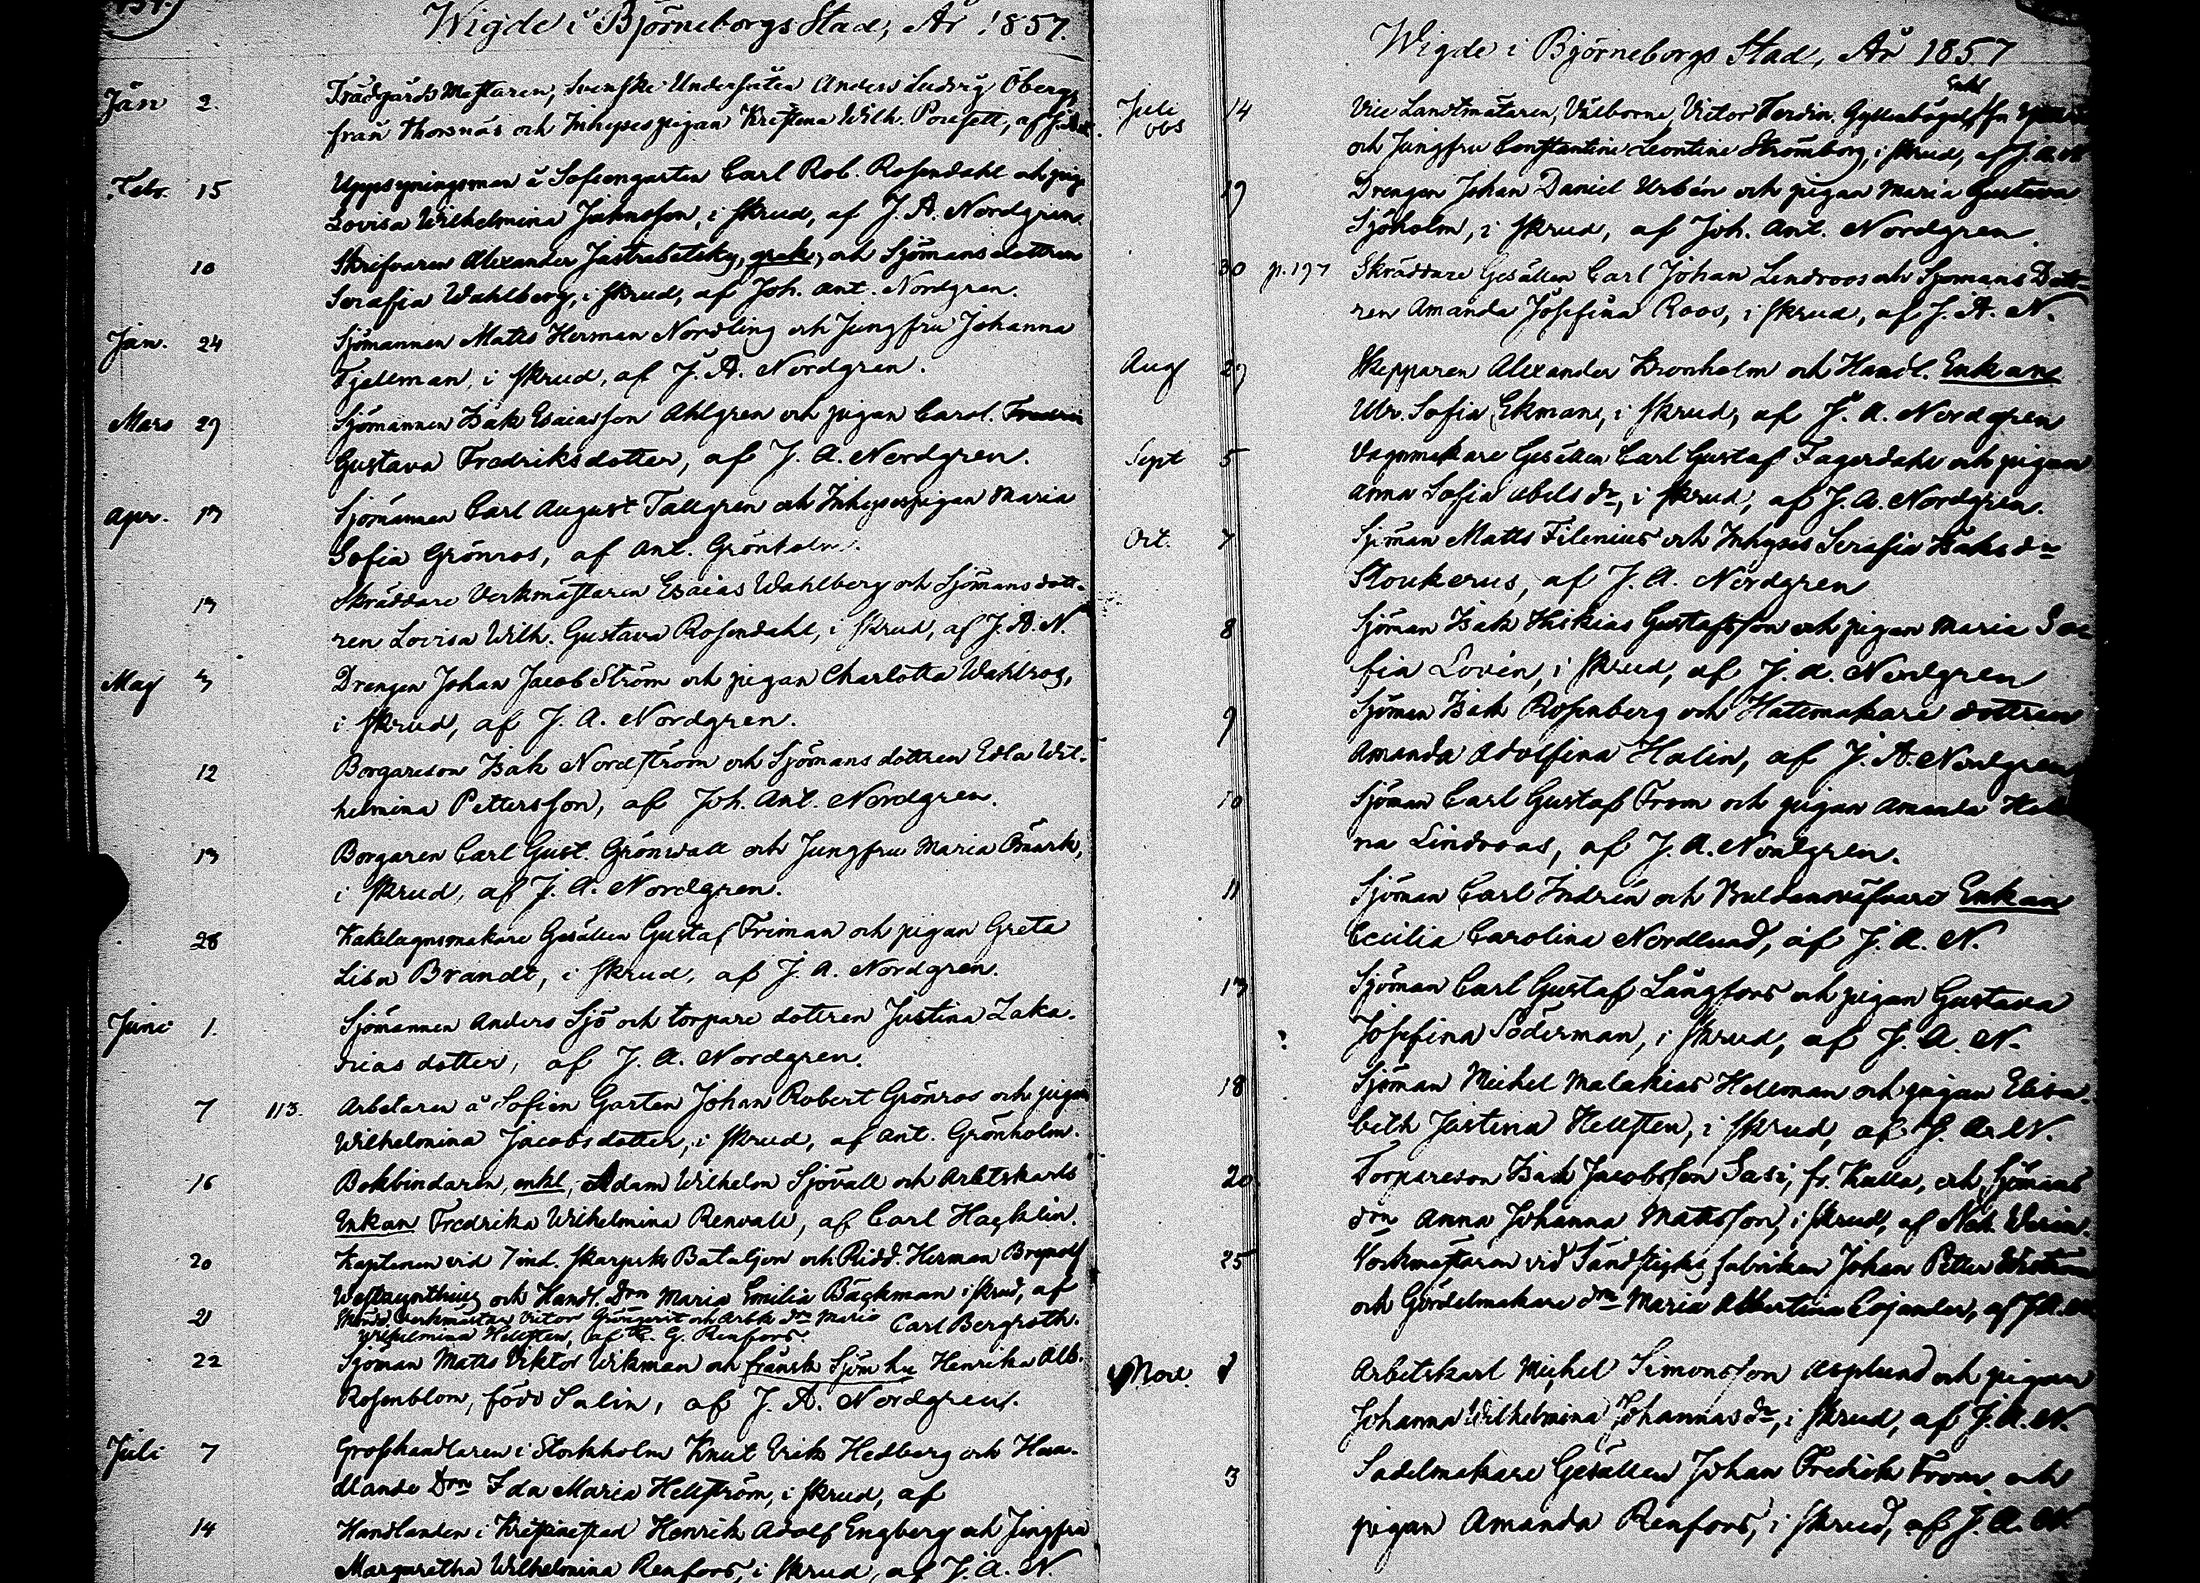 Wigde i Björneborgs Stad, År 1857.
Jan 2. Trädgårds Mästaren, Svenske Undersåten Anders Ludvig Öberg
från Thorsnäs och Inhyses pigan Kristina Wilh. af
Febr. 15 Uppsyningsman å Sofiengarten Carl Rob. Rosendahl och pig.
Lovisa Wilhelmina Johnsson, i skrud, af J. A. Nordgren.
10 Skrifvaren Alexander Jastrebetsky, grek, och Sjömans dottren
Serafia Wahlberg, i skrud, af Joh. Ant. Nordgren.
Jan. 24 Sjömannen Matts Herman Nordling och Jungfru Johanna
Tjellman, i skrud, af J. A. Nordgren.
Mars 29 Sjömannen Isak Esaiasson Ahlgren och pigan Carol.
Gustava Fredriksdotter, af J. A. Nordgren.
Apr. 13 Sjömannen Carl August Tallgren och Inhysespigan Maria
Sofia Grönros, af Ant. Grönholm.
13 Skräddare Verkmästaren Esaias Wahlberg och Sjömans dott-
ren Lovisa Wilh. Gustava Rosendahl, i skrud, af J. A. N.
Maj 3 Drengen Johan Jacob Ström och pigan Charlotta Wahlros,
i skrud, af J. A. Nordgren.
12 Borgareson Isak Nordström och Sjömans dottren Edla Wil-
helmina Pettersson, af Joh. Ant. Nordgren.
13 Borgaren Carl Gust. Grönwall och Jungfru Maria
i skrud, af J. A. Nordgren.
28 Kakelugnsmakare Gesällen Gustaf Friman och pigan Greta
Lisa Brandt, i skrud, af J. A. Nordgren.
Juni 1. Sjömannen Anders Sjö och torpare dottren Justina Zaka-
rias dotter, af J. A. Nordgren.
7 113. Arbetaren å Sofien Garten Johan Robert Grönros och pigan
Wilhelmina Jacobsdotter, i skrud, af Ant. Grönholm.
16 Bokbindaren, enkl, Adam Wilhelm Sjövall och Arbetskarls
Enkan Fredrika Wilhelmina Renvall, af Carl Hagklin.
20 Kaptenen vid 7 ind. Skarpsk. Bataljon och Ridd. Herman Brynolf
och Handl. Drn Maria Emilia Bäckman i skrud, af
Carl Bergroth.
21 Verkmästar Victor och Arbk. dr Maria
Wilhelmina Hellsten, af K. G. Renfors.
22 Sjöman Matts Viktor Wikman och fränsk. Sjöm. hu Henrika Alb.
Rosenblom, född Salin, af J. A. Nordgren.
Juli 7 Grosshandlaren i Stockholm Knut Erik Hedberg och Han-
dlande Drn Ida Maria Hellström, i skrud, af
14 Handlanden i Kristinestad Henrik Adolf Engberg och Jungfru
Margaretha Wilhelmina Renfors, i skrud, af J. A. N.
Wigde i Björneborgs Stad, År 1857
Enkl
Juli 14 Vice Landtmätaren, Välborne, Victor Ferdin. Gyllenbögel
obs och Jungfru Constantine Leontine Strömborg, i skrud, af J. A. N
19 Drengen Johan Daniel Urbén och pigan Maria Gustava
Sjöholm, i skrud, af Joh. Ant. Nordgren.
30 p. 197 Skräddare Gesällen Carl Johan Lindroos och Sjömans Dott-
ren Amanda Josefina Roos, i skrud, af J. A. N.
Aug 29 Skepparen Alexander Kronholm och Handl. Enkan
Ulr. Sofia Ekman, i skrud, af J. A. Nordgren
Sept 5 Vagnmakare Gesällen Carl Gustaf Fagerdahl och pigan
Anna Sofia Abels dr, i skrud, af J. A. Nordgren.
Oct. 7 Sjöman Matts Filenius och Inhyses Serafia Isaks dr
Stoukerus, af J. A. Nordgren
8 Sjöman Isak Hiskias Gustafsson och pigan Maria So
fia Lovén, i skrud, af J. A. Nordgren
9 Sjöman Isak Rosenberg och Hattmakare dottren
Amanda Adolfina Halin, af J. A. Nordgren
10 Sjöman Carl Gustaf From och pigan Amanda
na Lindroos, af J. A. Nordgren.
11 Sjöman Carl Indrén och Buldansväfvare Enkan
Cecilia Carolina Nordlund, af J. A. N.
13 Sjöman Carl Gustaf Långfors och pigan Gustava
Josefina Söderman, i skrud, af J. A. N.
18 Sjöman Michel Malakias Helleman och pigan Elisa-
beth Justina Hellsten, i skrud, af J. A. N.
20 Torpareson Isak Jacobsson Sasi, fr. Kulla, och Sjömans
drn Anna Johanna Mattsson, i skrud, af
25 Verkmästaren vid Tändsticks fabriken Johan Petter
och Gördelmakare drn Maria Albertina Cojander, af J. A. N
Nov. 1 Arbetskarl Michel Simonsson Asplund och pigan
Johanna Wilhelmina Johannas dr, i skrud, af J. A. N.
3 Sadelmakare Gesällen Johan Fredrik From och
pigan Amanda Renfors, i skrud, af J. A. N.